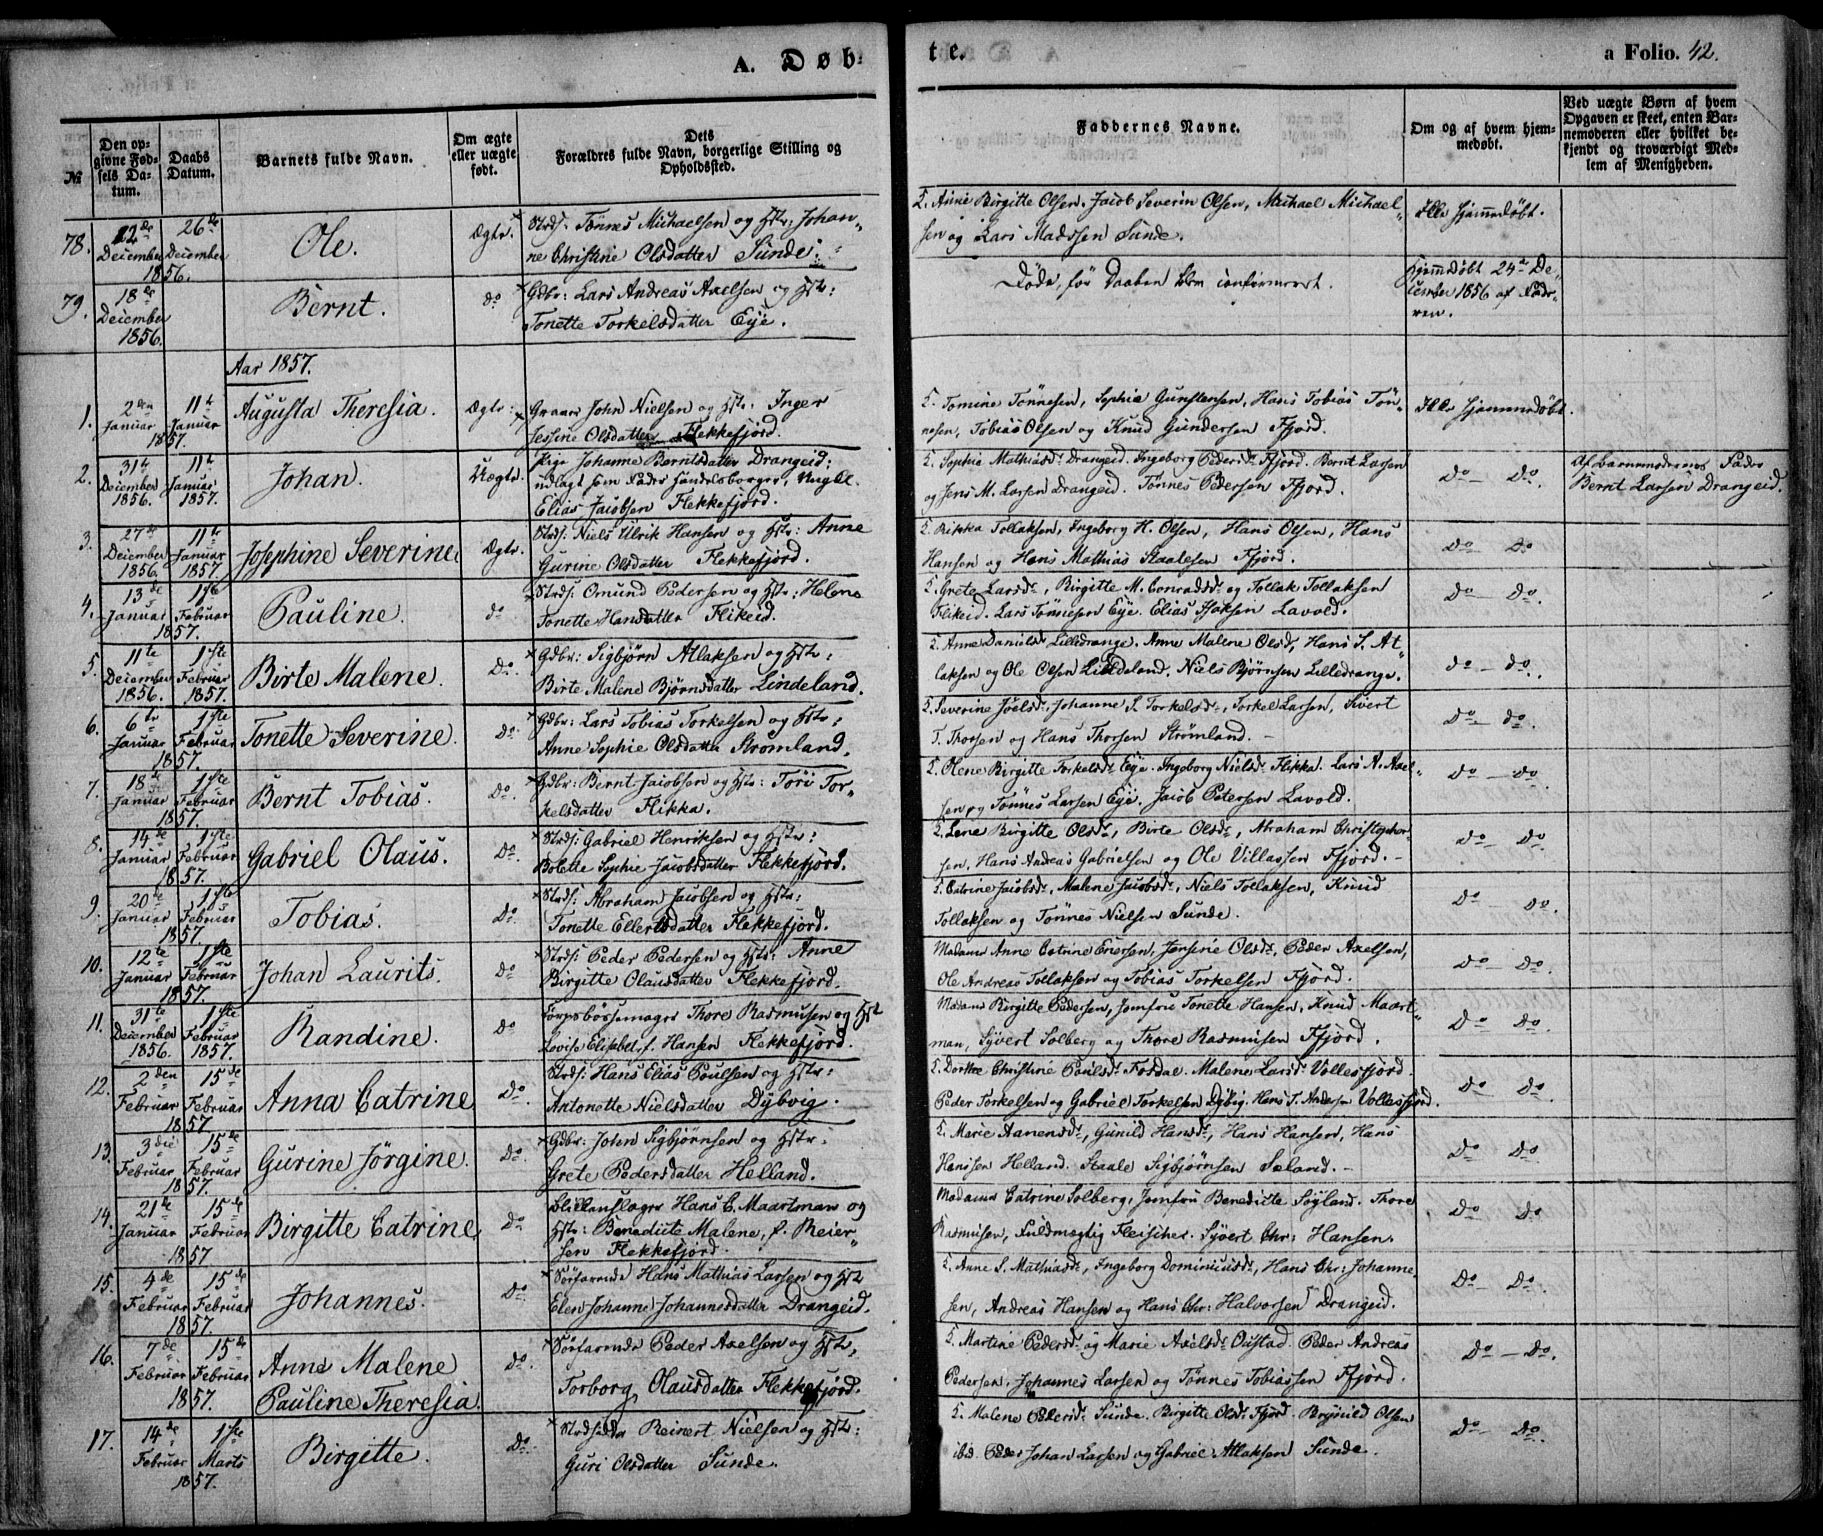 A. Døb-
te.
a Folio. 42.
№
Den op-
givne Fød-
sels Da-
tum.
Daabs
Datum.
Barnets fulde Navn.
Om ægte
eller uægte
født.
Dets
Forældres fulde Navn, borgerlige Stilling og
Opholdssted.
Faddernes Navne.
Om og af hvem hjem-
medøbt.
Ved uægte Børn af hvem
Opgaven er skeet, enten Bar-
nemoderen eller hvilket be-
kjendt og troværdigt Med-
lem af Menigheden.
78. 22de December 1856. 26de December Ole. Ægte. Strds: Tønnes Michaelsen og Hstr: Johan-
ne Christine Olsdatter Sunde.
Anne Birgitte Olsen, Jacob Severin Olsen, Michael Michael-
sen og Lars Madssen Sunde.
Ikke hjemmedøbt.
79. 18de December 1856. Bernt. do Gdbr: Lars Andreas Axelsen og Hstr:
Tonette Torkelsdatter Eye.
Døde, før Daaben blev confirmeret.
Hjemmdøbt 24de De-
cember 1856 af Fade-
ren.
Aar 1857.
1. 2den Januar 1857. 11te Januar Augusta Theresia. Ægte: Graver John Nielsen og Hstr: Inger
Jessine Olsdatter Flekkefjord.
Tomine Tønnesen, Sophie Gunstensen, Hans Tobias Tøn-
nesen, Tobias Olsen og Knud Gundersen Ffjord.
Ikke hjemmedøbt.
2. 31te December 1856. 11te Januar 1857. Johan. Uægte. Pige Johanne Berntsdatter Drangeid:
udlagt som Fader Handelsborger, Ungkl.
Elias Jacobsen Flekkefjord.
Sophie Mathiasdr Drangeid. Ingeborg Pedersdr Ffjord. Bernt Larsen
og Jens M. Larsen Drangeid. Tønnes Pedersen Ffjord.
Do — Do.
Af Barnemoderens Fader
Bernt Larsen Drangeid.
3. 27de December 1856. 11te Januar 1857 Josephine Severine Ægte. Strds: Niels Ulrik Hansen og Hstr: Anne
Gurine Olsdatter Flekkefjord.
Rikka Tollaksen, Ingeborg H. Olsen, Hans Olsen, Hans
Hansen og Hans Mathias Staalesen Ffjord.
Do — Do
4. 13de Januar 1857. 1ste Februar Pauline. do Strds: Omund Pedersen og Hstr: Helene
Tonette Hansdatter Flikeid.
Grete Larsdr, Birgitte M. Conradsdr og Tollak Tollaksen
Flikeid. Lars Tønnesen Eye. Elias Isaksen Lavold.
Do — Do.
5. 11te December 1856. 1ste Februar 1857. Birte Malene. Do. Gdbr: Sigbjørn Atlaksen og Hstr:
Birte Malene Bjørnsdatter Lindeland.
Anne Danielsdr Lilledrange. Anne Malene Olsdr, Hans S. At-
laksen og Ole Olsen Lindeland. Niels Bjørnsen Lilledrange.
do — do.
6. 6te Januar 1857. 1ste Februar Tonette Severine. Do. Gdbr: Lars Tobias Torkelsen og Hstr:
Anne Sophie Olsdatter Strømland.
Severine Joelsdr, Johanne S. Torkelsdr, Torkel Larsen, Sivert
T. Thorsen og Hans Thorsen Strømland.
Do — do.
7. 18de Januar 1857. 1ste Februar Bernt Tobias. Do. Gdbr: Bernt Jacobsen og Hstr: Tori Tor-
kelsdatter Flikka.
Olene Birgitte Torkelsdr Eye. Ingeborg Nielsdr Flikka. Lars A. Axel-
sen og Tønnes Larsen Eye. Jacob Petersen Lavold.
Do — Do.
8. 14de Januar 1857. 1ste Februar Gabriel Olaus. Do. Strds: Gabriel Henriksen og Hstr:
Bolette Sophie Jacobsdatter Flekkefjord.
Lene Birgitte Olsdr, Birte Olsdr, Abraham Christopher-
sen, Hans Andreas Gabrielsen og Ole Villassen Ffjord.
Do — Do.
9. 20de Januar 1857. 1ste Februar Tobias. Do. Strds: Abraham Jacobsen og Hstr:
Tonette Ellertsdatter Flekkefjord.
Catrine Jacobsdr, Malene Jacobsdr, Niels Tollaksen, Knud
Tollaksen og Tønnes Nielsen Sunde.
Do — Do.
10. 12te Januar 1857. 1ste Februar Johan Laurits. Do Strds: Peder Pedersen og Hstr: Anne
Birgitte Olausdatter Flekkefjord.
Madame Anne Catrine Enersen, Jensine Olsdr, Peder Axelsen,
Ole Andreas Tollaksen og Tobias Torkelsen Ffjord.
Do — Do.
11. 31te December 1856. 1ste Februar 1857. Randine. Do Corpsbøssemager Thore Rasmusen og Hstr
Lovise Elisabet, f. Hansen Flekkefjord.
Madame Birgitte Pedersen, Jomfru Tonette Hansen, Knud Maart-
man, Syvert Solberg og Thore Rasmusen Ffjord.
Do — Do.
12. 2den Februar 1857 15de Februar Anna Catrine Do. Strds: Hans Elias Poulsen og Hstr:
Antonette Nielsdatter Dybvig.
Dorthe Christine Poulsdr Fosdal. Malene Larsdr Vollesfjord.
Peder Torkelsen og Gabriel Torkelsen Dybvig. Hans T. Andersen Vollesfjord.
Do — Do.
13. 3die Februar 1857. 15de Februar Gurine Jørgine. Do. Gdbr: John Sigbjørnsen og Hstr:
Grete Pedersdatter Helland.
Marie Aanensdr, Gunild Hansdr, Hans Hansen, Hans
Hansen Helland. Staale Sigbjørnsen Sæland.
Do — Do.
14. 21de Januar 1857 15de Februar Birgitte Catrine Do Blikkenslager Hans C. Maartman og
Hstr: Benedicte Malene, f. Reier-
sen Flekkefjord.
Madame Catrine Solberg, Jomfru Benedicte Søyland. Thore
Rasmusen, Fuldmægtig Fleischer. Syvert Chr: Hansen.
Do — Do
15. 4de Februar 1857. 15de Februar Johannes. Do. Søfarende Hans Mathias Larsen og Hstr
Elen Johanne Johannesdatter Drangeid.
Anne S. Mathiasdr, Ingeborg Dominicusdr, Hans Chr: Johanne-
sen, Andreas Hansen og Hans Chr: Halvorsen Drangeid.
Do — Do.
16. 7de Februar 1857. 15de Februar Anne Malene
Pauline Theresia. Do. Søfarende Peder Axelsen og Hstr,
Torborg Olausdatter Flekkefjord.
Martine Pedersdr og Marie Axelsdr Øustad. Peder Andreas
Pedersen, Johannes Larsen og Tønnes Tobiassen Ffjord.
Do — Do.
17. 14de Februar 1857. 1ste Marts Birgitte. Do. Strdsidder Reinert Nielsen og Hstr:
Guri Olsdatter Sunde.
Malene Pedersdr Sunde. Birgitte Olsdr Ffjord. Brynild Olsen
ibd. Peder Johan Larsen og Gabriel Atlaksen Sunde.
Do — Do.